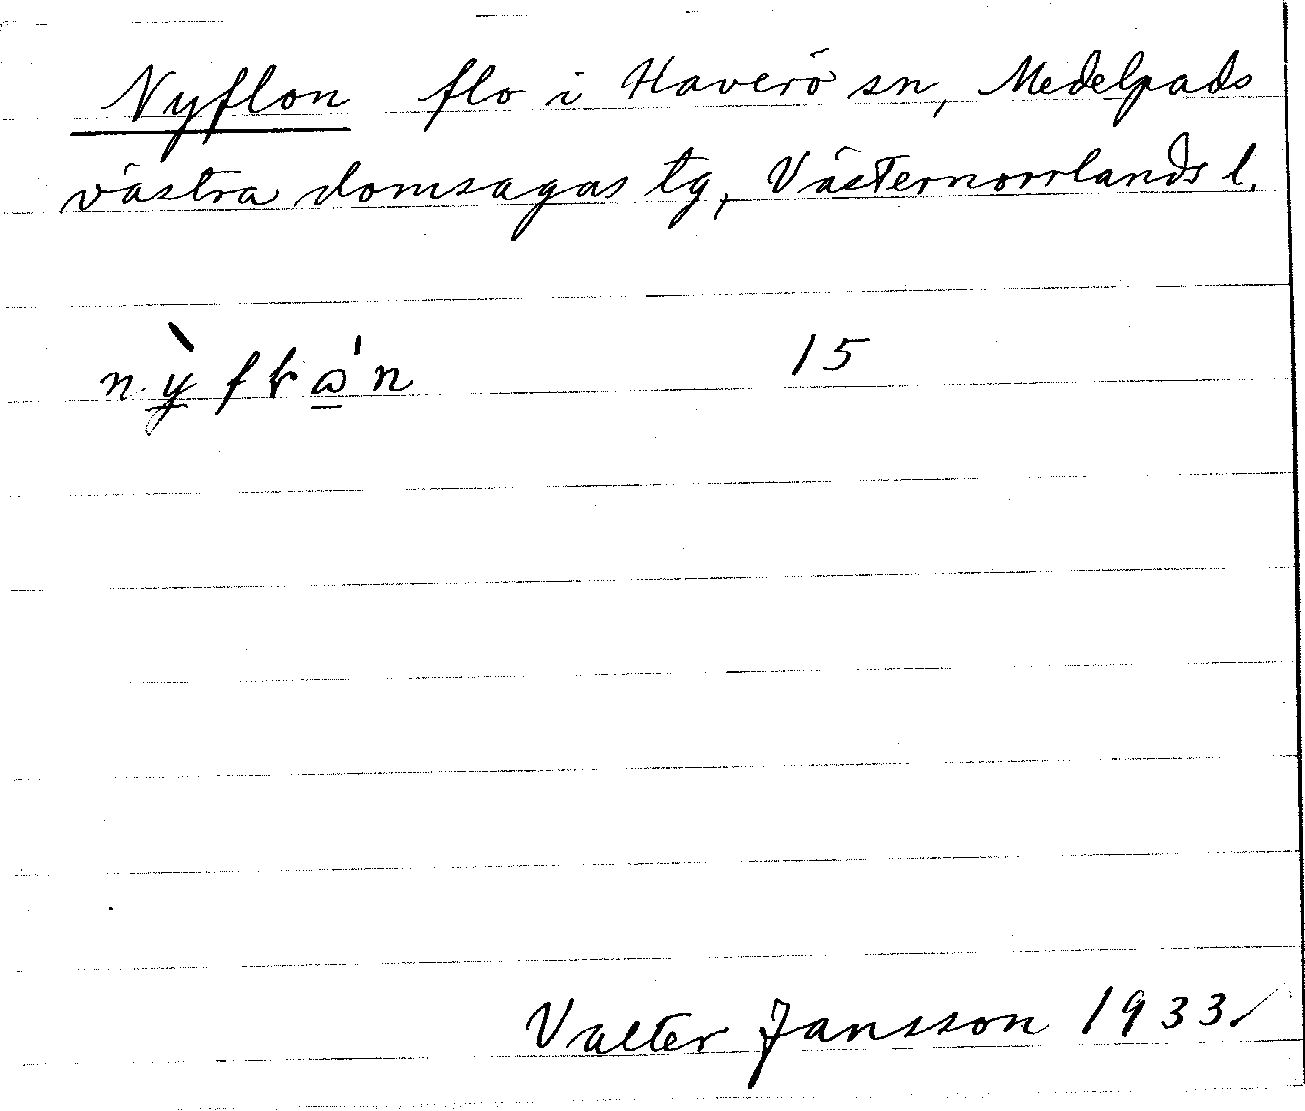 Nyflon flo i Haverö sn, Medelpads
västra domsagas tg, Västernorrlands l.
15
Valter Jansson 1933.